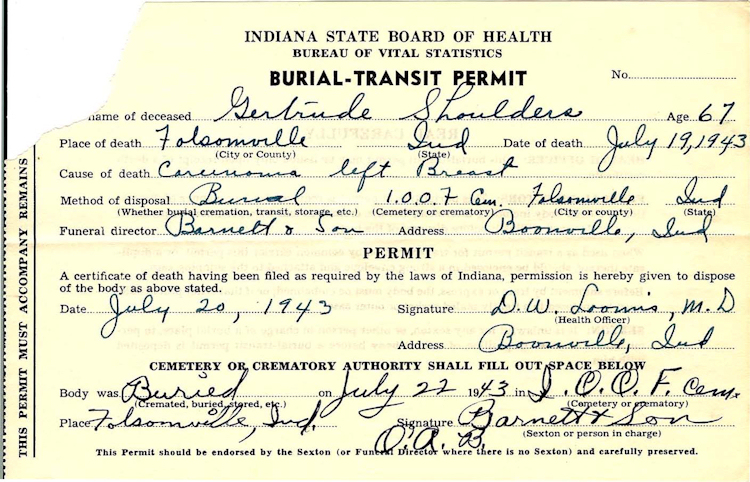 INDIANA STATE BOARD OF HEALTH
BUREAU OF VITAL STATISTICS
BURIAL-TRANSIT PERMIT No.
name of deceased Gertrude Shoulders Age 67
Place of death Folsomville Ind Date of death July 19, 1943
(City or County) (State)
Cause of death Carcinoma left Breast
Method of disposal Burial I.O.O.F Cem. Folsomville Ind
(Whether burial cremation, transit, storage, etc.) (Cemetery or crematory) (City or county) (State)
Funeral director Barnett & Son Address Boonville, Ind
PERMIT
A certificate of death having been filed as required by the laws of Indiana, permission is hereby given to dispose
of the body as above stated.
Date July 20, 1943 Signature D. W. Loomis, M. D
(Health Officer)
Address Boonville, Ind
CEMETERY OR CREMATORY AUTHORITY SHALL FILL OUT SPACE BELOW
Body was Buried on July 22 1943 in I. O. O. F. Cem.
(Cremated, buried, stored, etc.) (Cemetery or crematory)
Place Folsomville, Ind. Signature Barnett & Son
(Sexton or person in charge)
O. A. B.
This Permit should be endorsed by the Sexton (or Funeral Director where there is no Sexton) and carefully preserved.
THIS PERMIT MUST ACCOMPANY REMAINS